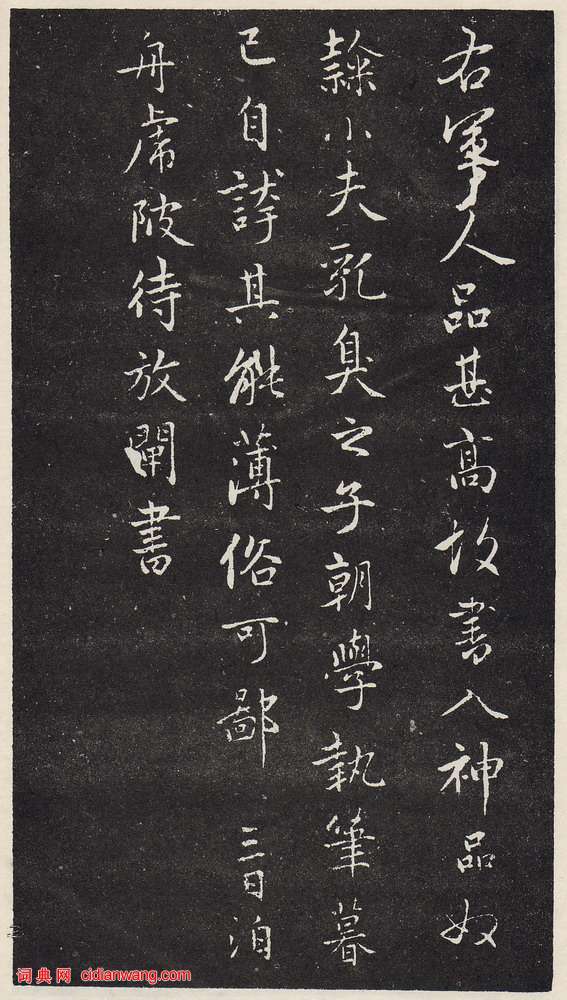 右軍人品甚高故書入神品奴
隸小夫乳臭之子朝學執筆暮
已自誇其能薄俗可鄙 三日泊
舟虎陂待放閘書
词典网 cidianwang.com